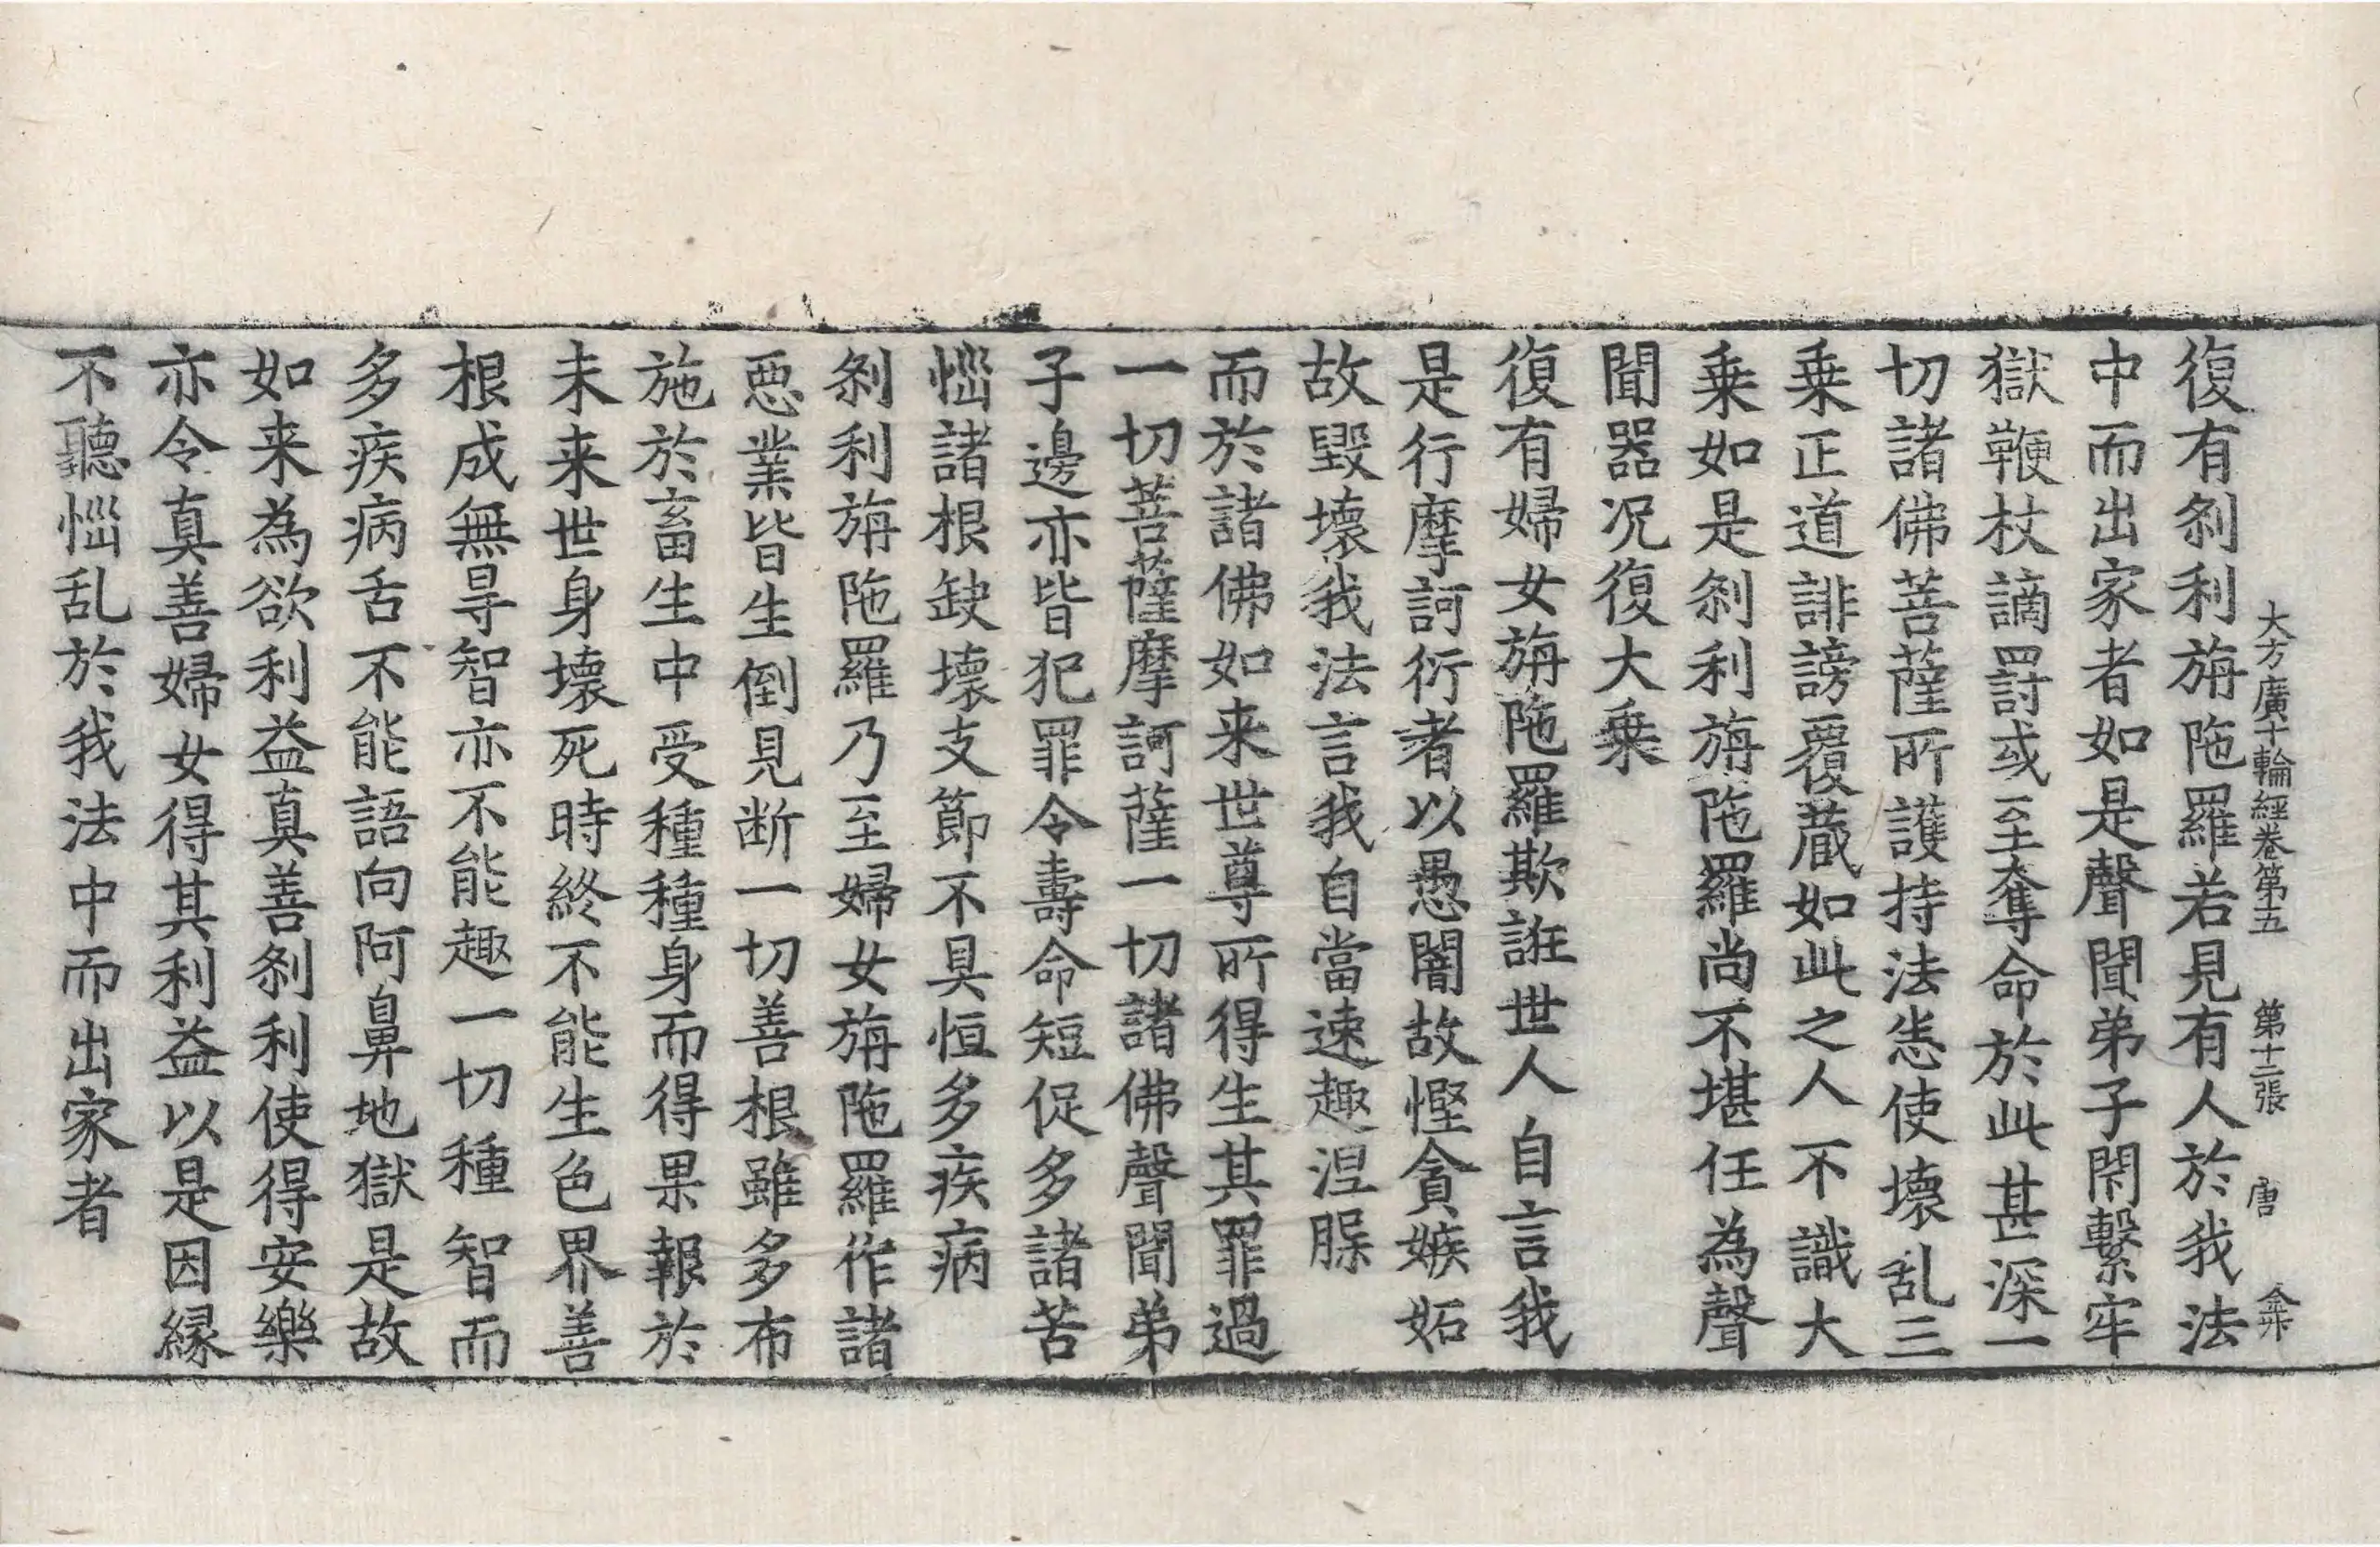 大方廣十輪經卷第五 第十二張 唐
復有刹利旃陁羅若見有人於我法
中而出家者如是聲聞弟子閇繫牢
獄鞭杖謫罰或至奪命於此甚深一
切諸佛菩薩所護持法恙使壞乱三
乗正道誹謗覆蔵如此之人不識大
乗如是刹利旃陁羅尚不堪任為聲
聞器况復大乗
復有婦女旃陁羅欺誑世人自言我
是行摩訶衍者以愚闇故慳貪嫉妬
故毀壞我法言我自當速趣涅槃
而於諸佛如来世尊所得生其罪過
一切菩薩摩訶薩一切諸佛聲聞弟
子邊亦皆犯罪令壽命短促多諸苦
惱諸根缺壞支節不具恒多疾病
刹利旃陁羅乃至婦女旃陁羅作諸
惡業皆生倒見断一切善根雖多布
施於畜生中受種種身而得果報於
未来世身壞死時終不能生色界善
根成無㝵智亦不能趣一切種智而
多疾病舌不能語向阿鼻地獄是故
如来為欲利益真善刹利使得安樂
亦令真善婦女得其利益以是因縁
不聽惱乱於我法中而出家者